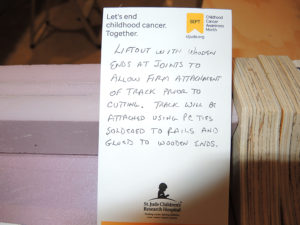 Let's end
childhood cancer.
Together.
SEPT
Childhood
Cancer
Awareness
Month
stjude.org
LIFTOUT WITH WOODEN
ENDS AT JOINTS TO
ALLOW FIRM ATTACHMENT
OF TRACK PRIOR TO
CUTTING. TRACK WILL BE
ATTACHED USING PC TIES
SOLDERED TO RAILS AND
GLUED TO WOODEN ENDS.
St. Jude Children's
Research Hospital